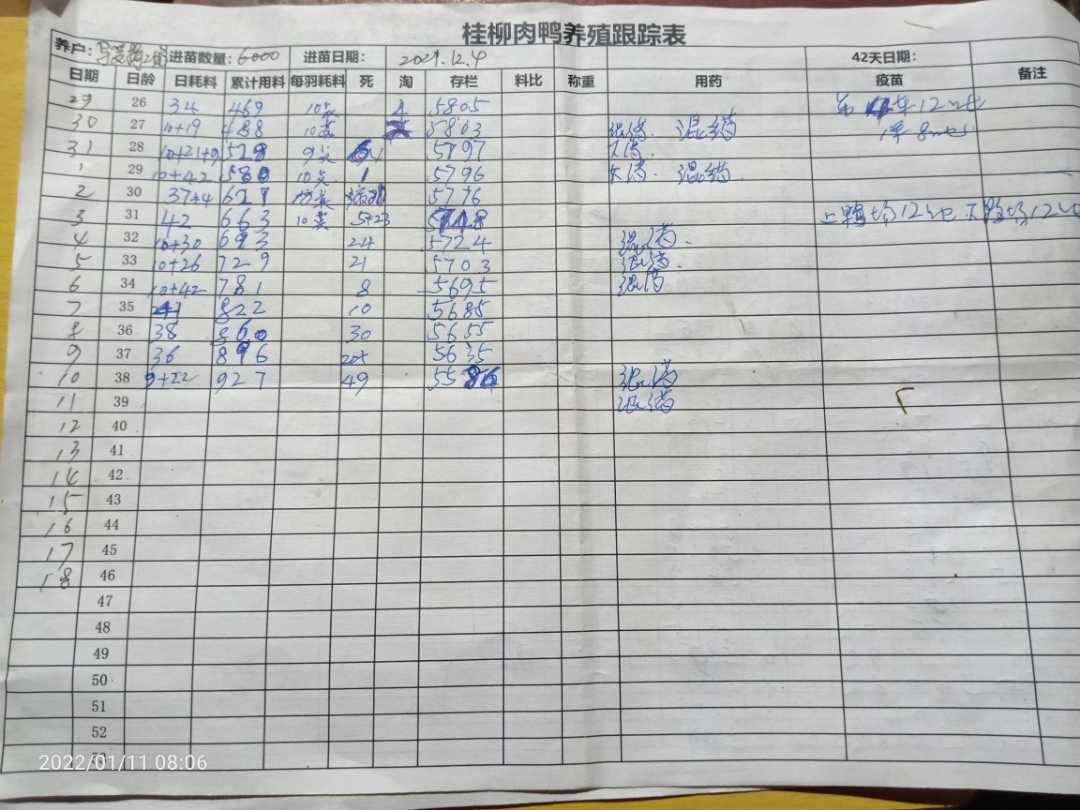 桂柳肉鸭养殖跟踪表
养户: 进苗数量:6000 进苗日期: 2021.12.4 42天日期:
日期 日龄 日耗料 累计用料 每羽耗料 死 淘 存栏 料比 称重 用药 疫苗 备注
29 26 34 469 5805
30 27 10+19 488 5803 混药
31 28 10+21+9 528 5797
1 29 10+42 580 1 5796 混药
2 30 37+4 621 5776
3 31 42 663 5+23 5748
4 32 10+30 693 24 5724 混药
5 33 10+26 729 21 5703 混药
6 34 10+42 781 8 5695 混药
7 35 41 822 10 5685
8 36 38 860 30 5655
9 37 36 896 5635
10 38 9+22 927 49 5586 混药
11 39 混药
12 40
13 41
14 42
15 43
16 44
17 45
18 46
47
48
49
50
51
52
2022/01/11 08:06